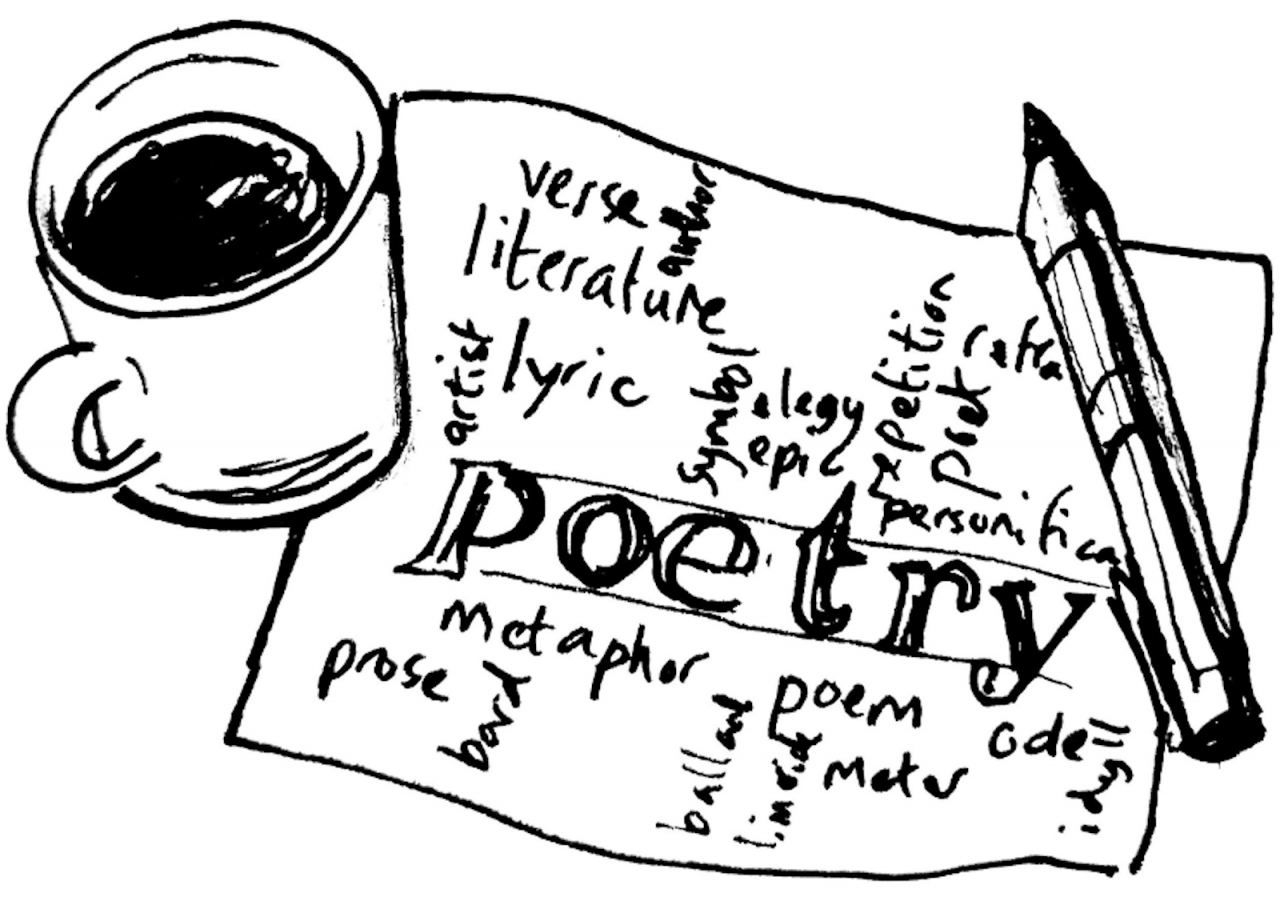 verse
author
literature
artist
lyric
symbol
elegy
epic
repetition
poet
refra
personifica
Poetry
metaphor
prose
bard
ballad
poem
meter
ode
idyll